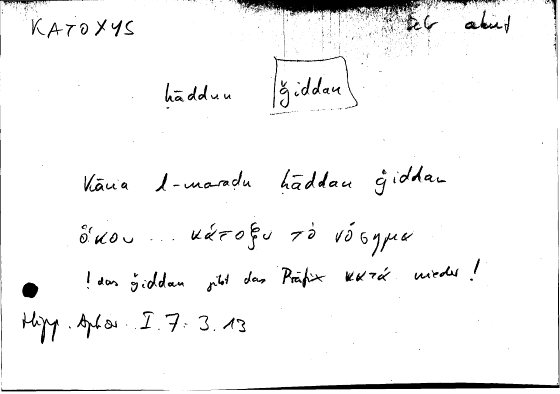 ΚΑΤΟΧΥΣ sehr akut
ḥāddun ǧiddan
Kāna l-maraḍu ḥāddan ǧiddan
ὅκου ... κάτοξυ τὸ νόσημα
! das ǧiddan gibt das Präfix κατά wieder !
Hipp. Aphor. I. 7. 3. 13